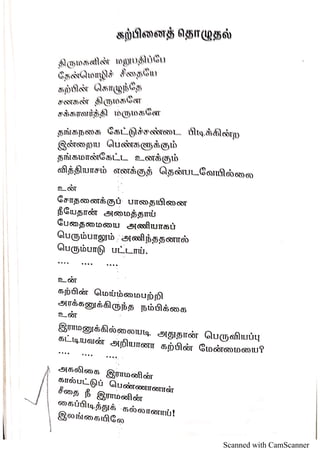 கற்பினைத் தொழுதல்
திருமகளின் மறுபதிப்பே
தேன்மொழிச் சீதையே
கற்பின் கொழுந்தே
சனகன் திருமகளே
சக்கரவர்த்தி மருமகளே
தங்கநகை கேட்டுச்சண்டை பிடிக்கின்ற
இன்றைய பெண்களுக்கும்
தங்கமான்கேட்ட உனக்கும்
வித்தியாசம் எனக்குத் தென்படவேயில்லை
உன்
சோதனைக்குப் பாதையினை
நீயேதான் அமைத்தாய்
பேதைமையை அணியாகப்
பெரும்பாலும் அணிந்ததனால்
பெரும்பாடு பட்டாய்.
.... .... ....
உன்
கற்பின் மெய்ம்மைபற்றி
அரக்கனுக்கிருந்த நம்பிக்கை
உன்
இராமனுக்கில்லையடி அதுதான் பெருவியப்பு
கட்டியவன் அறியானா கற்பின் மேன்மையை?
.... .... ....
அகலிகை இராமனின்
கால்பட்டுப் பெண்ணானாள்
சீதை நீ இராமனின்
கைப்பிடித்துக் கல்லானாய்!
இலங்கையிலே
Scanned with CamScanner